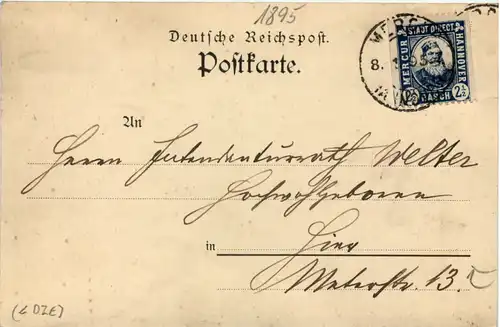 1895
Deutsche Reichspost.
Postkarte.
MERC
8. 95
STADT DIRECT
MERCUR
HANNOVER
2½ MARCH 2½
An
Herrn Intendanturrath Welter
Hochwohlgeboren
in Hier
Meterstr. 13.
(LDZE)